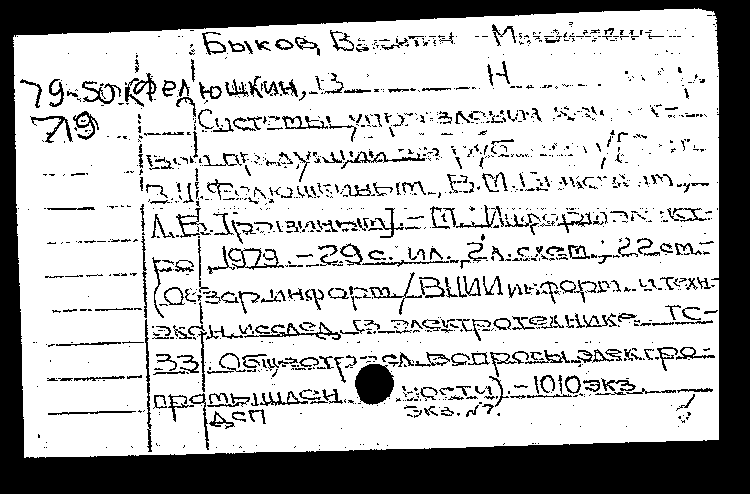 Быков, Валентин Михайлович
79-50К Федюшкин, В Н
719
Системы управления качест-
вом продукции за руб
В.Н. Федюшкиным, В.М. Быковым,
Л.В. ]. - М.: Информэлект-
ро, 1979. - 29 с., ил., 2 л. схем.; 22 см. -
(Обзор. информ. / ВНИИ информ. и техн-
экон. исслед. в электротехнике. ТС-
33. Общеотрасл. вопросы электро-
промышленности). - 1010 экз.
ДСП экз. №7.